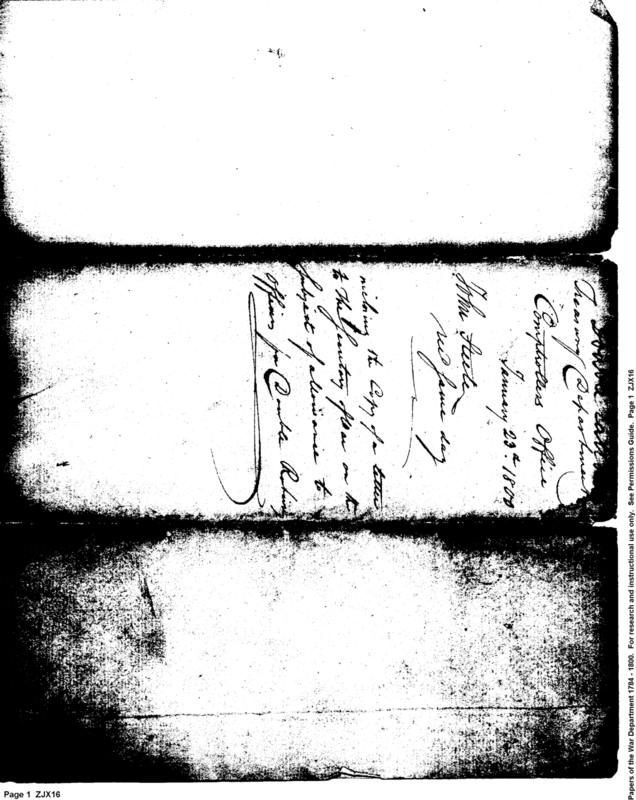 Treasury Department
Comptrollers Office
January 23d. 1800
John Steele
rec'd same day
the Copy of a letter
to the Secretary of War on the
subject of allowance to
officers for Double Rations
Page 1 ZJX16
Papers of the War Department 1784 - 1800. For research and instructional use only. See Permissions Guide. Page 1 ZJX16